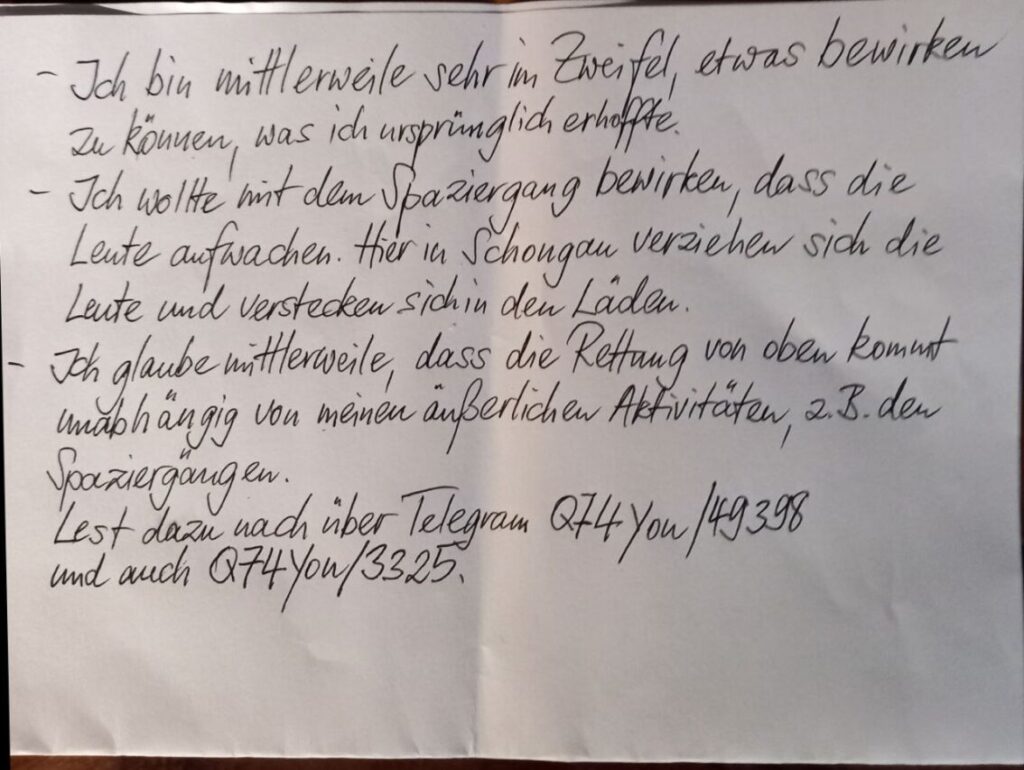 - Ich bin mittlerweile sehr im Zweifel, etwas bewirken
zu können, was ich ursprünglich erhoffte.
- Ich wollte mit dem Spaziergang bewirken, dass die
Leute aufwachen. Hier in Schongau verziehen sich die
Leute und verstecken sich in den Läden.
- Ich glaube mittlerweile, dass die Rettung von oben kommt
unabhängig von meinen äußerlichen Aktivitäten, z.B. den
Spaziergängen.
Lest dazu nach über Telegram Q74You/49398
und auch Q74You/3325.